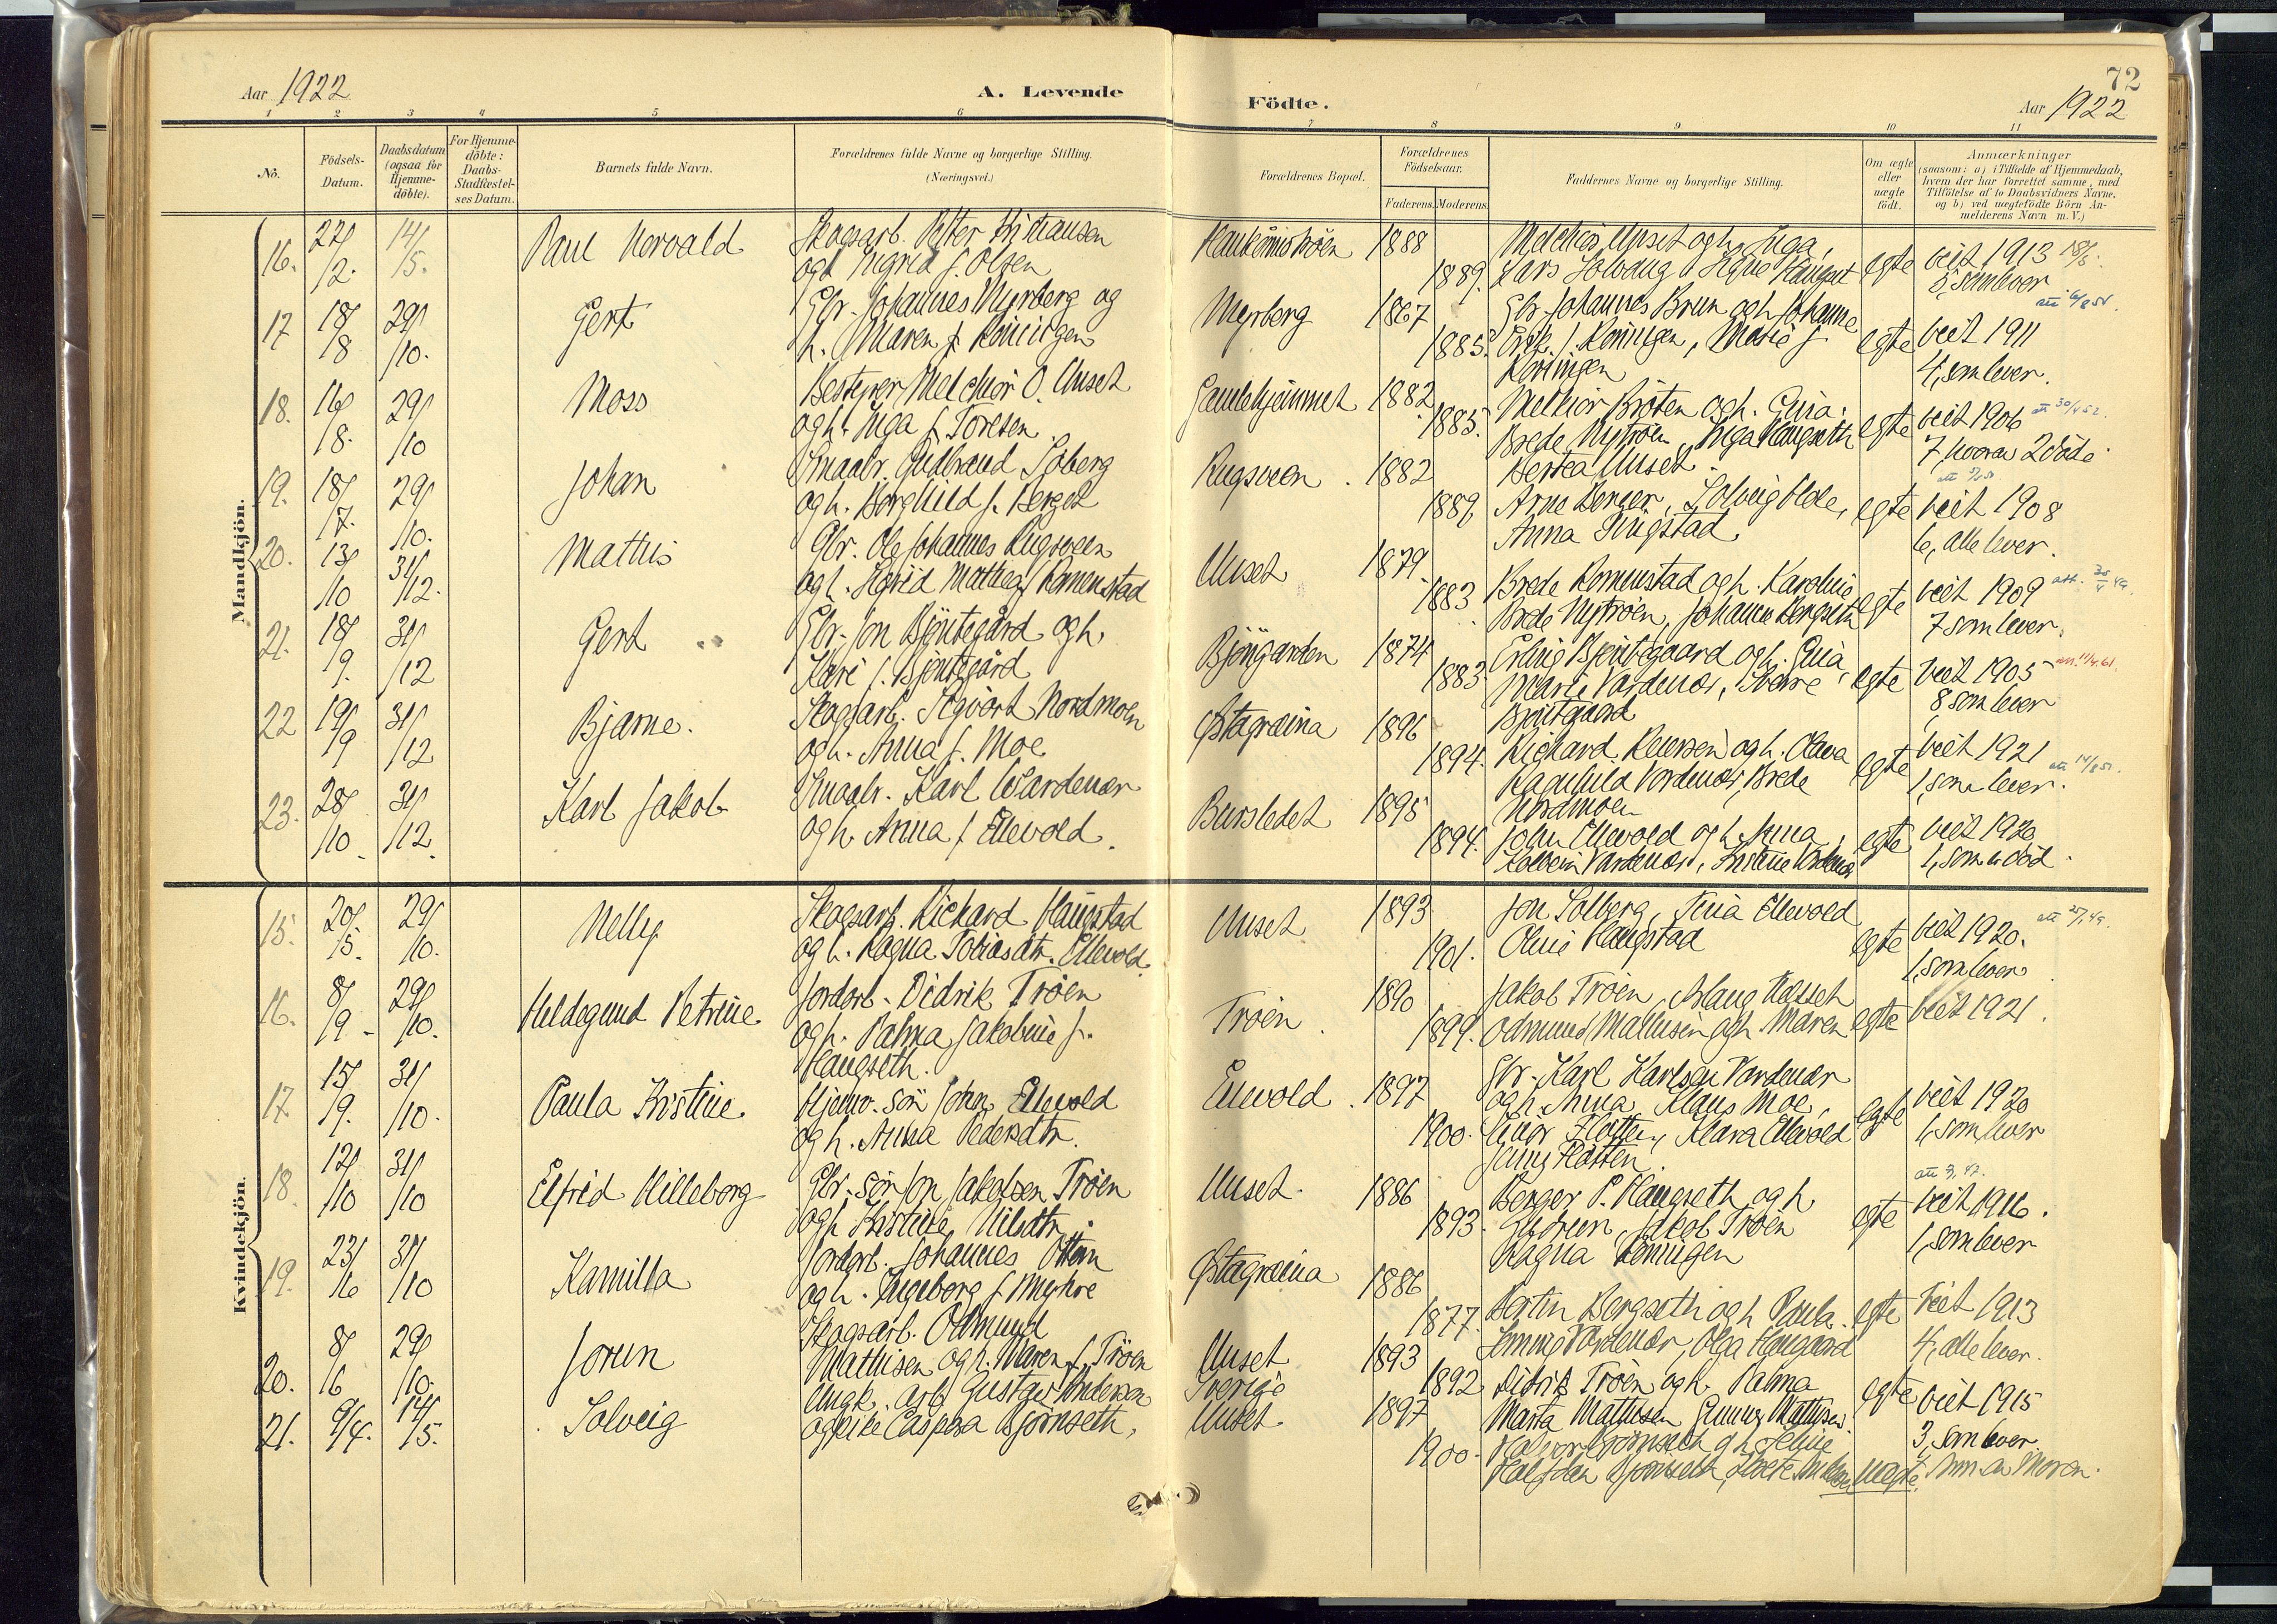 Aar 1922
A. Levende
Födte.
72
Aar 1922
1 2 3 4 5 6 7 8 9 10 11
No.
Födsels-
Datum.
Daabsdatum
(ogsaa for
Hjemme-
döbte).
For Hjemme-
döbte:
Daabs-
Stadfæstel-
ses Datum.
Barnets fulde Navn.
Forældrenes fulde Navne og borgerlige Stilling.
(Næringsvei.)
Forældrenes Bopæl.
Forældrenes
Födselsaar.
Faderens. Moderens.
Faddernes Navne og borgerlige Stilling.
Om ægte
eller
uægte
født.
Anmærkninger
(saasom: a) i Tilfælde af Hjemmedaab,
hvem der har forrettet samme, med
Tilföielse af to Daabsvidners Navne,
og b) ved uægtefödte Börn An-
melderens Navn m. V.)
Mandkjön.
16. 22/12. 14/5. Paul Norvald
Skogsarb. Peter Kristiansen
og h. Ingrid f. Olsen
1888 1889.
Melchior Unset og h. Inga,
Lars Solvang
egte viet 1913 18/6.
som lever
17 18/18 29/10. Gert
Gbr. Johannes Myrberg og
h. Maren f. Könningen
Myrberg 1867 1885.
Gbr. Johannes Brun og h. Johanne
Könningen
egte viet 1911
4, som lever.
18. 16/18. 29/10 Moss
Bestyrer Melchior O. Unset
og h. Inga f. Toresen
Gamlehjemmet 1882 1885.
Melkior Bröten og h. Guia.
Brede Nytröen, Inga Haugseth
Bertea Unset.
egte viet 1906
7, hvorav 2 döde.
19. 18/7. 29/10. Johan
Smaabr. Gudbrand Soberg
og h. Borghild f. Berget
Rugsveen 1882 1889
Arne Berger, Solveig Olde,
Anna Ringstad
egte viet 1908
6, alle lever.
20. 13/10 31/12. Mathis
Gbr. Ole Johannes Rugsveen
og h. Sigrid Mathea f. Romenstad
Unset 1879 1883
Brede Romenstad og h. Karoline
Brede Nytröen, Johanne Bergseth
egte viet 1909
7 som lever.
21. 18/9. 31/12 Gert
Gbr. Jon Bjöntegård og h.
Kari f. Bjöntegård
Bjöngarden 1874 1883
Erling Bjöntegaard og h. Guia,
Marie Vardenær, Sverre
Bjöntegaard
egte viet 1905
8, som lever
22 19/9 31/12 Bjarne.
Skogsarb. Sigvart Nordmoen
og h. Anna f. Moe
Østagræina 1896 1894.
Richard Petersen og h. Olava
Ragnhild Vardenær, Brede
Nordmoen
egte viet 1921
1, som lever.
23. 28/10. 31/12. Karl Jakob
Smaabr. Karl Wardenær
og h. Anna f. Ellevold.
Bursledet 1895 1894.
John Ellevold og h. Anna,
Kolbein Vardenær, Kristine Vardenær
egte viet 1920
1, som er död.
Kvindekjön.
15. 20/5. 29/10. Nelly
Skogsarb. Richard Haugstad
og h. Ragna Tobiasdtr. Ellevold
Unset 1893 1901.
Jon Solberg, Tina Ellevold
Oline Haugstad
egte viet 1920.
1, som lever
16. 8/9. 29/10. Hildegund Petrine
Jordarb. Didrik Tröen
og h. Palma Jakobine f.
Haugseth.
Tröen. 1890 1899.
Jakob Tröen, Aslaug Næsset
Odmund Mathisen og h. Maren
egte viet 1921.
17 15/9. 31/10. Paula Kristine
Hjemv. sön John Ellevold
og h. Anna Pedersdtr.
Ellevold. 1897 1900.
Gbr. Karl Karlsen Vardenær
og h. Anna, Klaus Moe,
Einar Flötten, Klara Ellevold
Jenny Flötten
egte viet 1920
1, som lever
18. 12/10 31/10 Elfrid Hilleborg
Gbr. sön Jon Jakobsen Tröen
og h. Kristine Nilsdtr.
Unset. 1886 1893.
Berger P. Haugseth og h.
Gudrun, Jakob Tröen
Ragna Könningen
egte viet 1916.
1, som lever
19. 23/6 31/10 Kamilla
Jordarb. Johannes Ottem
og h. Ingeborg f. Myhre
Østagræina 1886 1877.
Bertin Bergseth og h. Paula.
Henning Vardenær, Olga Haugaard
egte viet 1913
4, alle lever.
20. 8/6 29/10. Jorun
Skogsarb. Odmund
Mathisen og h. Maren f. Tröen
Unset 1893 1892
Didrik Tröen og h. Palma
Marta Mathisen Gunnar Mathisen.
egte viet 1915
3, som lever.
21. 9/4. 14/5. Solveig
Ungk. arb. Gustav Anderson
og pike Caspera Bjørnseth,
Sverige
Unset. 1897 1900.
Halvor Bjørnseth og h. Helene
Halfdan Bjørnseth
uegte, Anm. av Moren.